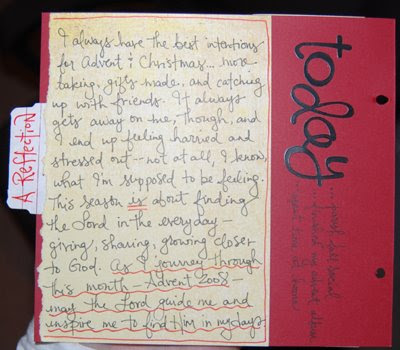 I always have the best intentions
for Advent & Christmas... more
taking, gifts made, and catching
up with friends. It always
gets away on me, though, and
I end up feeling harried and
stressed out -- not at all, I know,
what I'm supposed to be feeling.
This season is about finding
the Lord in the everyday -
giving, sharing, growing closer
to God. As I journey through
this month - Advent 2008 -
may the Lord guide me and
inspire me to find Him in my days.
A Reflection
today
...parish hall social
...finish my advent album
time at home